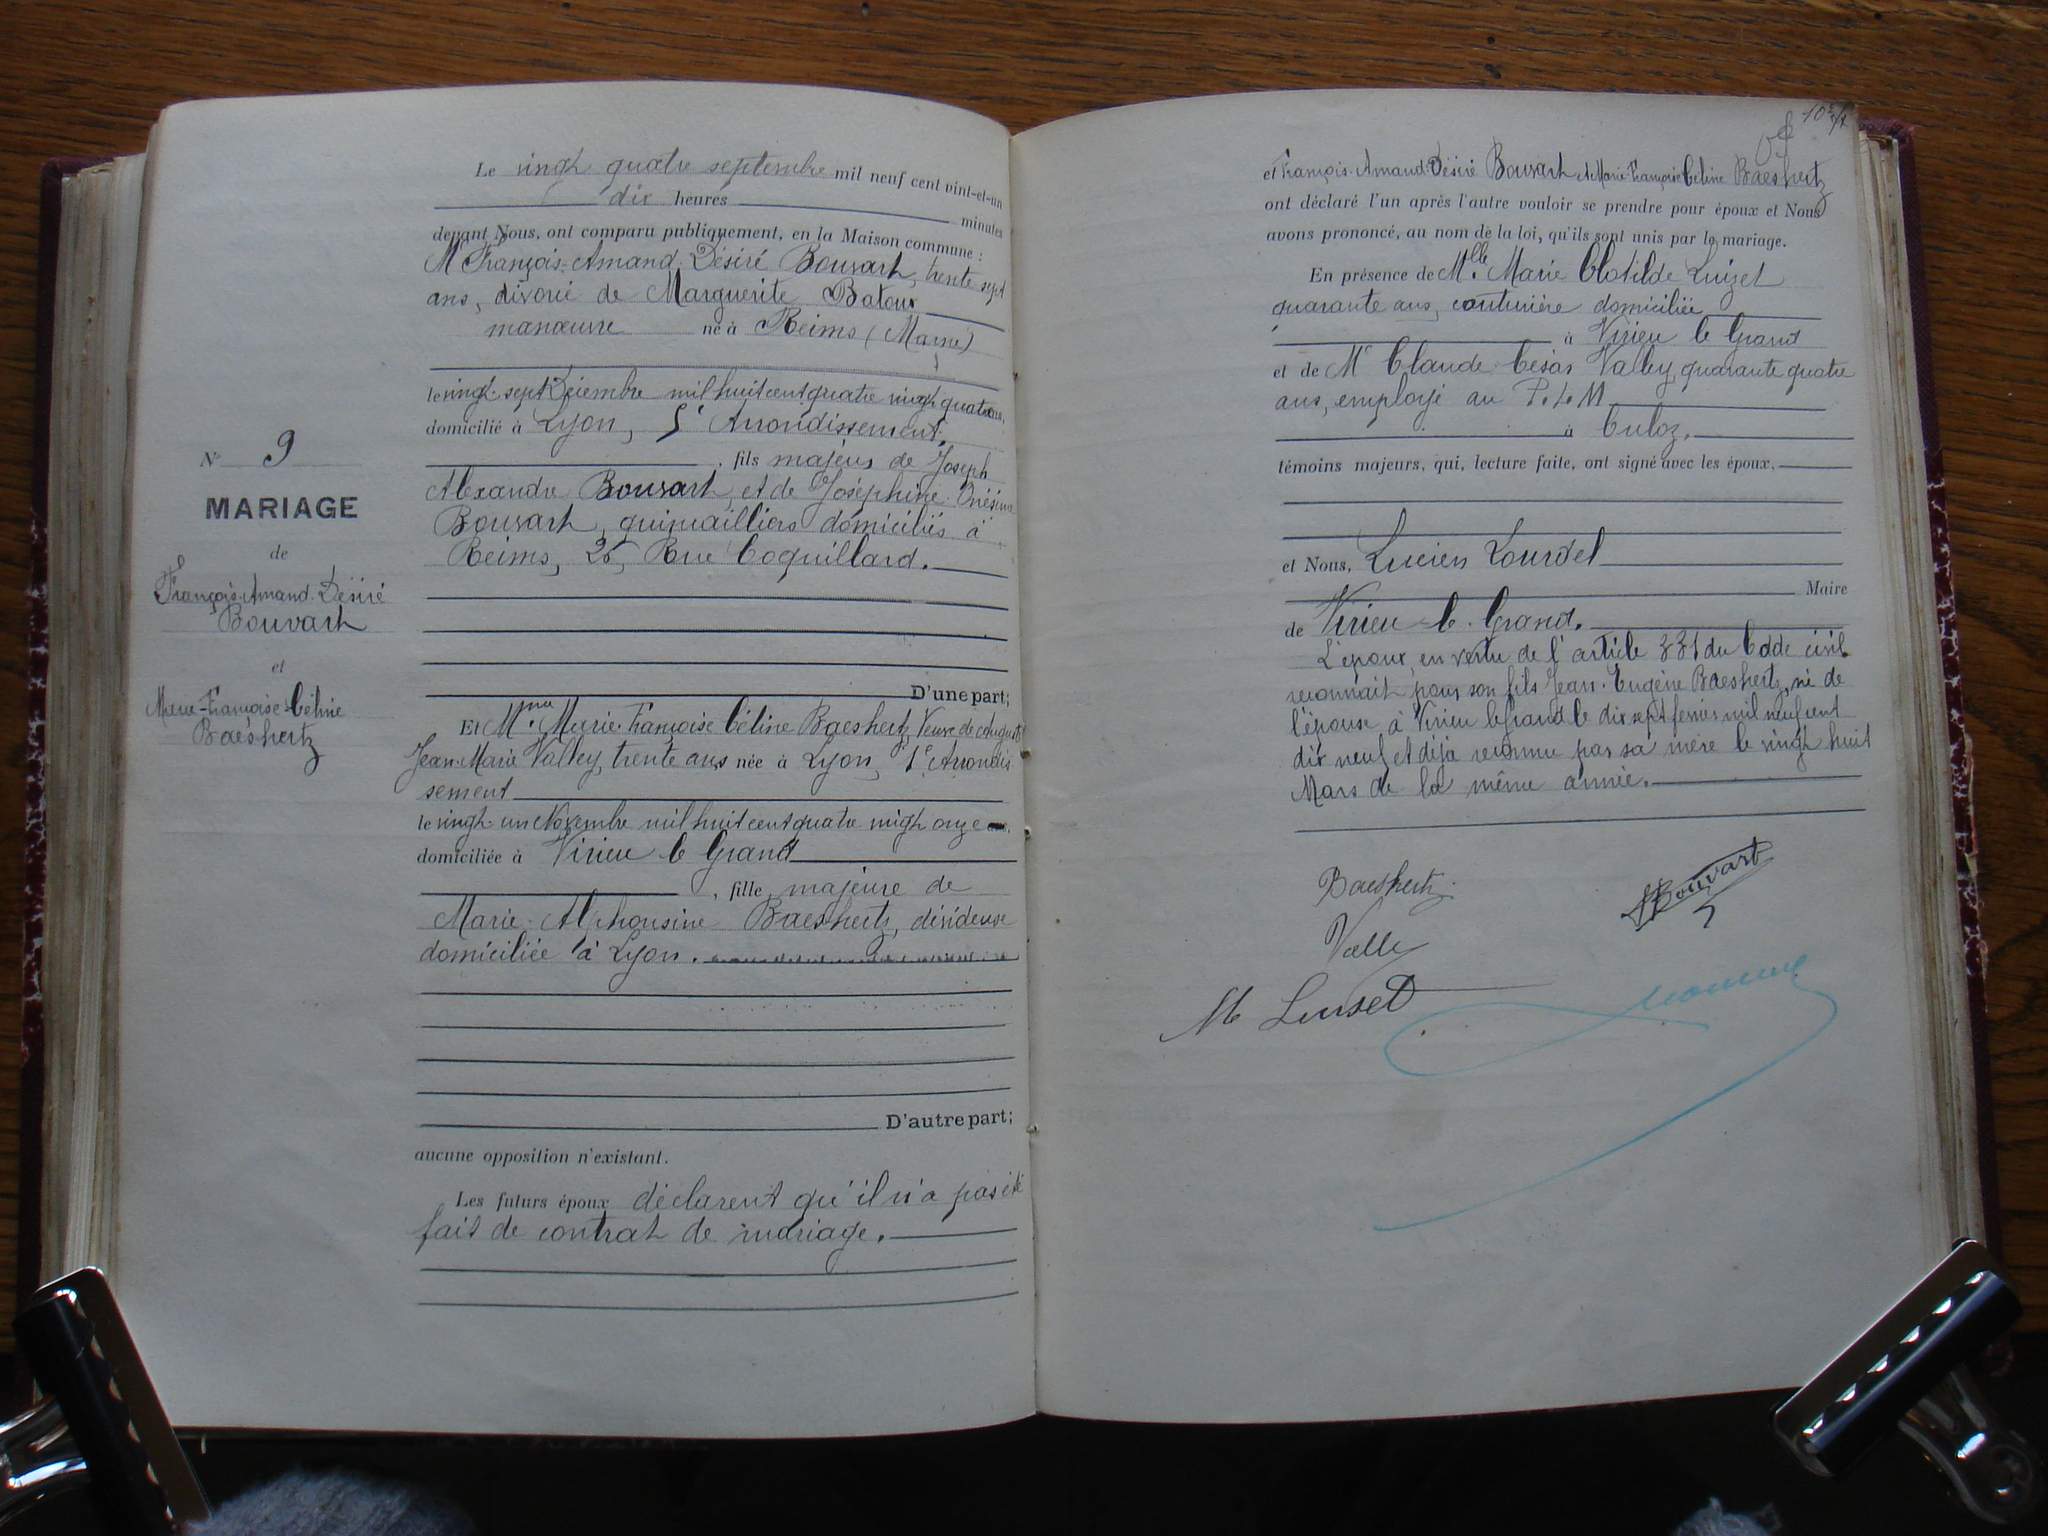 N° 9
MARIAGE
de
François-Amand-Désiré
Bouvart
et
Marie-Françoise-Céline
Baeshertz
Le vingt quatre septembre mil neuf cent vint-et-un
dix heures minutes
devant Nous, ont comparu publiquement, en la Maison commune :
M François-Amand-Désiré Bouvart, trente sept
ans, divorcé de Marguerite
manœuvre né à Reims (Marne)
le vingt-sept Décembre mil huit cent quatre vingt quatre
domicilié à Lyon, 5e Arrondissement,
, fils majeur de Joseph
Alexandre Bouvart, et de Joséphine Onésime
Bouvart, quincailliers domiciliés à
Reims, 26, Rue Coquillard.
D'une part;
Et Mme Marie-Françoise Céline Baeshertz, Veuve de
Jean-Marie Valley, trente ans née à Lyon, 1e Arrondis
sement
le vingt un Novembre mil huit cent quatre vingt onze
domiciliée à Virieu le Grand
, fille majeure de
Marie-Alphonsine Baeshertz, dévideuse
domiciliée à Lyon.
D'autre part;
aucune opposition n'existant.
Les futurs époux déclarent qu'il n'a pas été
fait de contrat de mariage.
105
et François-Amand-Désiré Bouvart et Marie-Françoise Céline Baeshertz
ont déclaré l'un après l'autre vouloir se prendre pour époux et Nous
avons prononcé, au nom de la loi, qu'ils sont unis par le mariage.
En présence de Mlle Marie Clotilde Luizet
quarante ans, couturière domiciliée
à Virieu le Grand
et de Mr Claude César Valley, quarante quatre
ans, employé au P.L.M
à Culoz.
témoins majeurs, qui, lecture faite, ont signé avec les époux,
et Nous, Lucien Lourdel
Maire
de Virieu-le-Grand.
L'époux, en vertu de l'article 331 du Code civil
reconnait pour son fils Jean-Eugène Baeshertz, né de
l'épouse à Virieu le Grand le dix sept fevrier mil neuf cent
dix neuf et déjà reconnu par sa mère le vingt huit
Mars de la même année.
Baeshertz
Bouvart
Valley
M Luiset